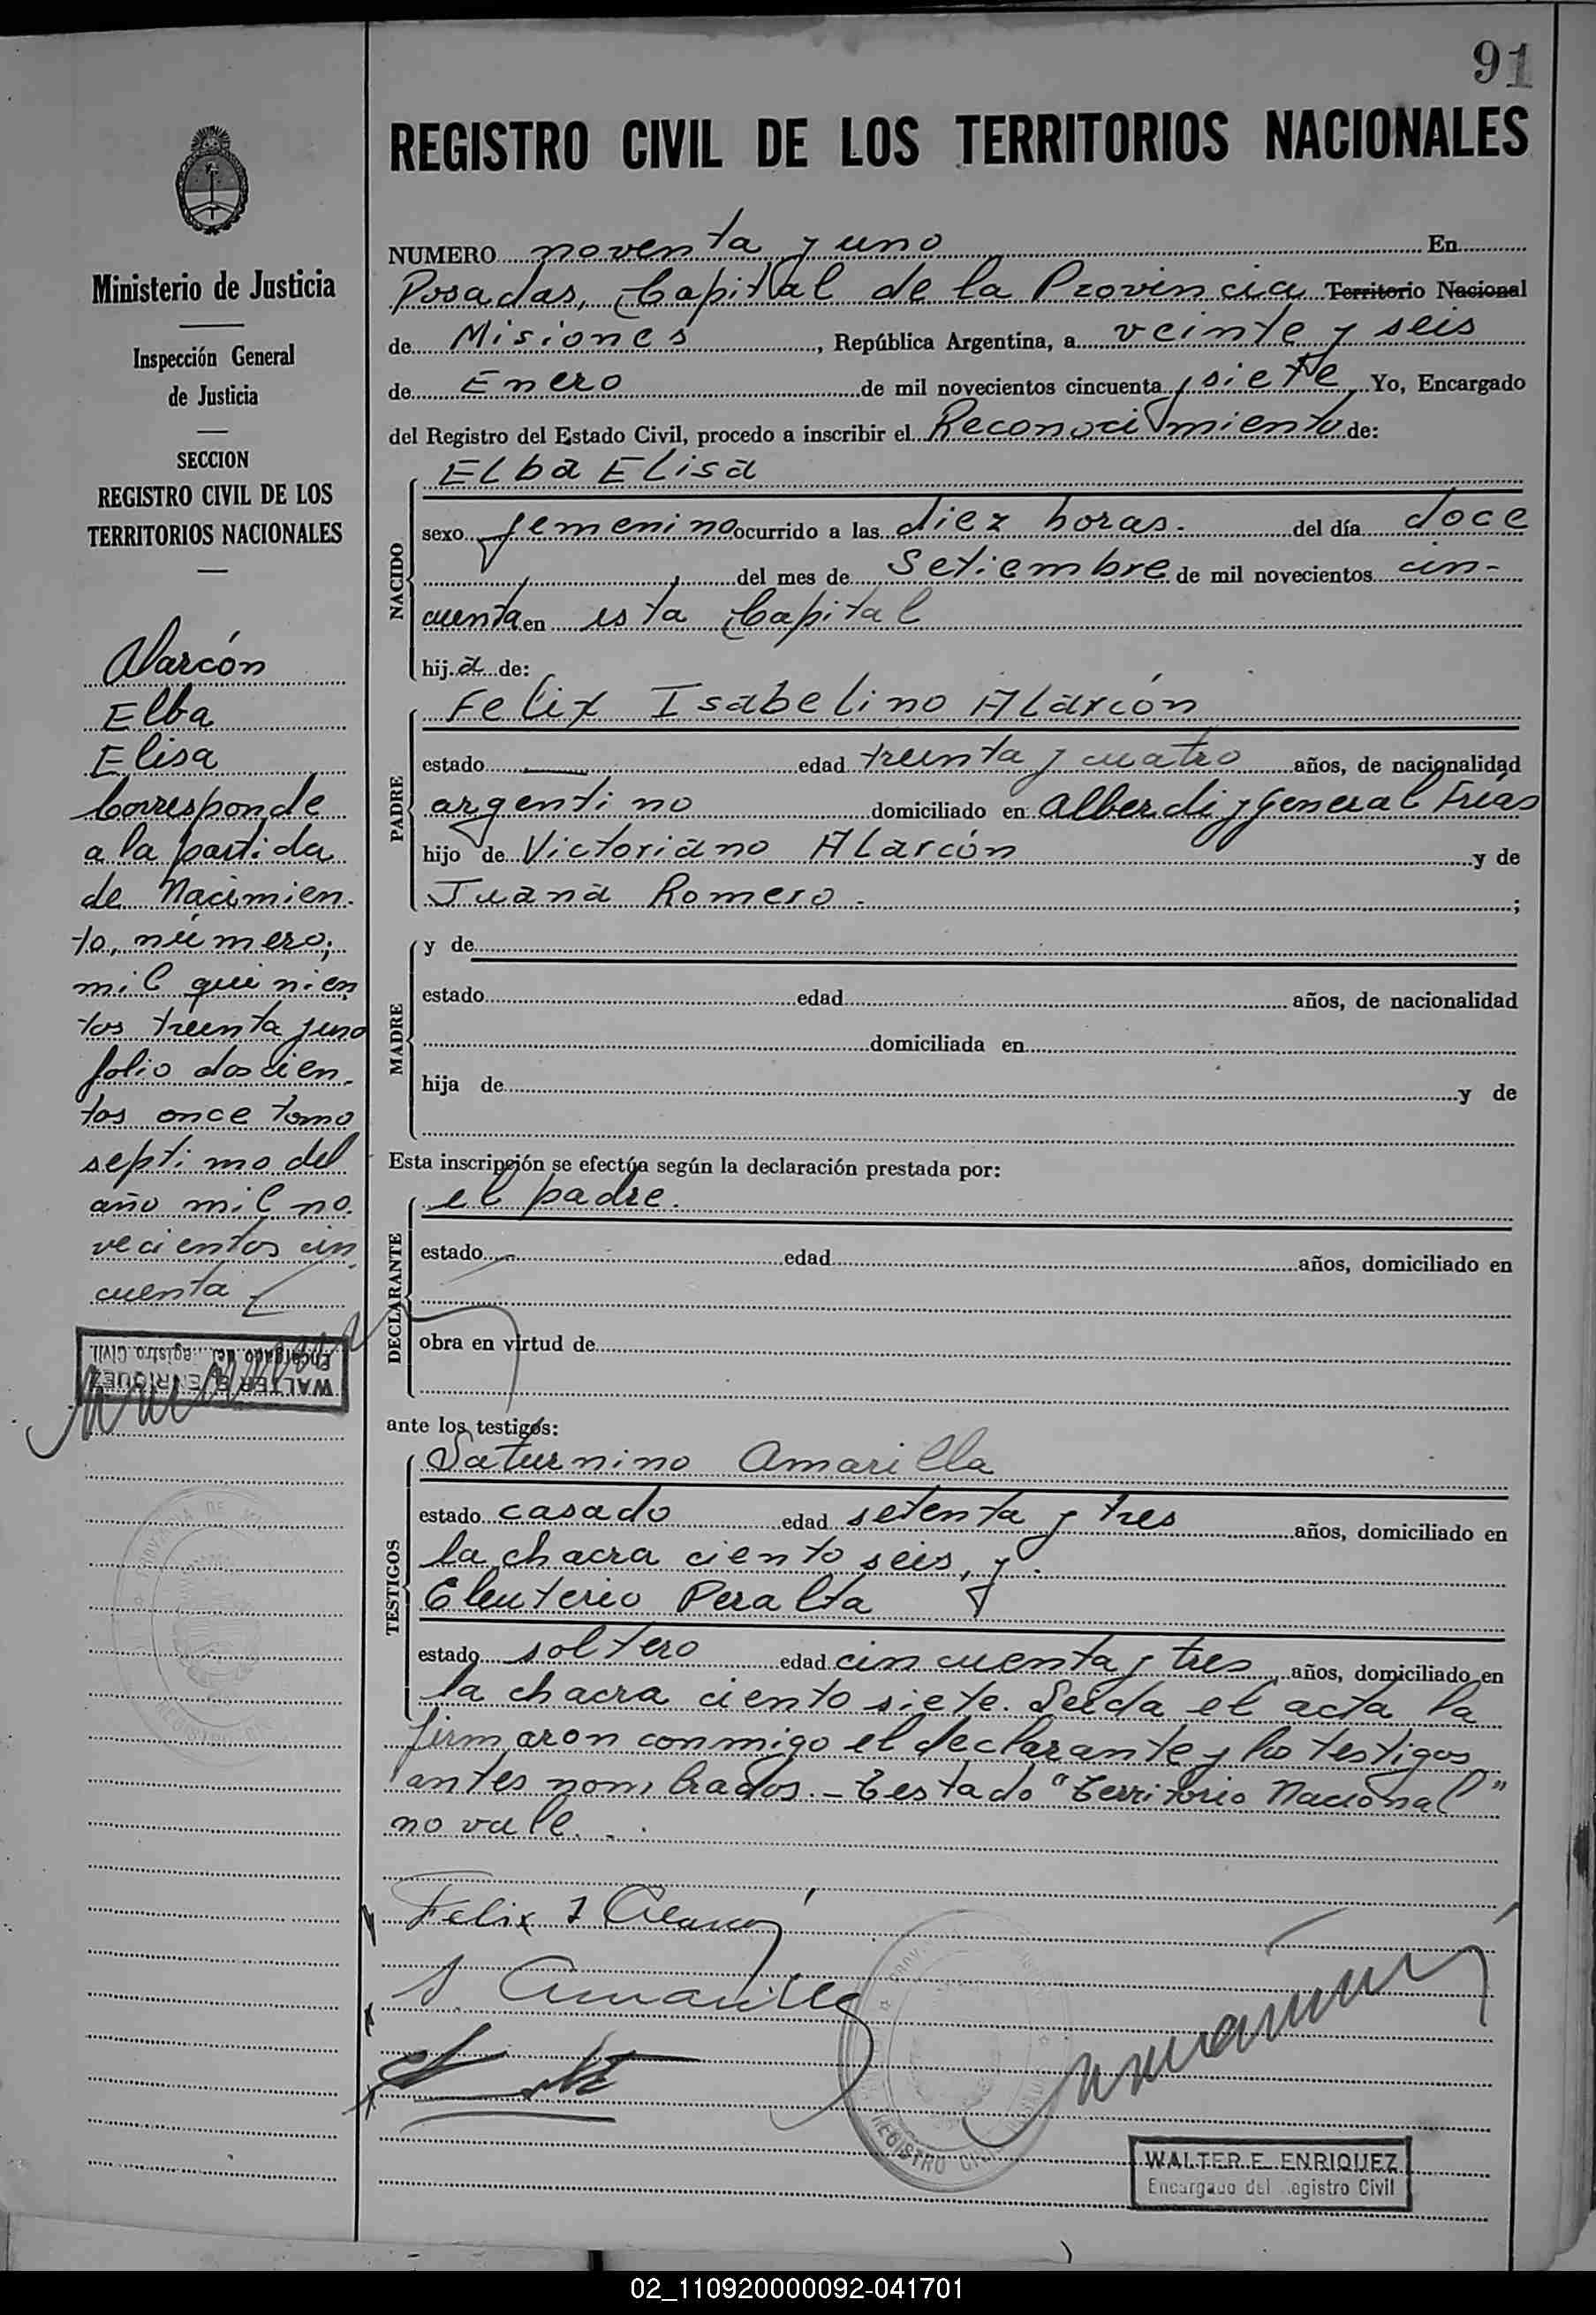 91
REGISTRO CIVIL DE LOS TERRITORIOS NACIONALES
Ministerio de Justicia
Inspección General
de Justicia
SECCION
REGISTRO CIVIL DE LOS
TERRITORIOS NACIONALES
Alarcón
Elba
Elisa
Corresponde
a la partida
de Nacimien-
to, número;
mil quinien
tos treinta y uno
folio doscien-
tos once tomo
septimo del
año mil no-
vecientos cin
cuenta
WALTER E. ENRIQUEZ
Encargado del Registro Civil
NUMERO noventa y uno En
Posadas, Capital de la Provincia Territorio Nacional
de Misiones, República Argentina, a veinte y seis
de Enero de mil novecientos cincuenta y siete Yo, Encargado
del Registro del Estado Civil, procedo a inscribir el Reconocimiento de:
NACIDO
Elba Elisa
sexo femenino ocurrido a las diez horas.- del día doce
del mes de Setiembre de mil novecientos cin-
cuenta en esta Capital
hija de:
PADRE
Felix Isabelino Alarcón
estado edad treinta y cuatro años, de nacionalidad
argentino domiciliado en Alberdi y General Frías
hijo de Victoriano Alarcón y de
Juana Romero.- ;
MADRE
y de
estado edad años, de nacionalidad
domiciliada en
hija de y de
Esta inscripción se efectúa según la declaración prestada por:
DECLARANTE
el padre.
estado edad años, domiciliado en
obra en virtud de
ante los testigos:
TESTIGOS
Saturnino Amarilla
estado casado edad setenta y tres años, domiciliado en
la chacra ciento seis, y
Eleuterio Peralta
estado soltero edad cincuenta y tres, años, domiciliado en
la chacra ciento siete. Leida el acta la
firmaron conmigo el declarante y los testigos
antes nombrados.- Testado "Territorio Nacional"
no vale.
Felix I Alarcón
S. Amarilla
REGISTRO CIVIL
WALTER E. ENRIQUEZ
Encargado del Registro Civil
02_110920000092-041701